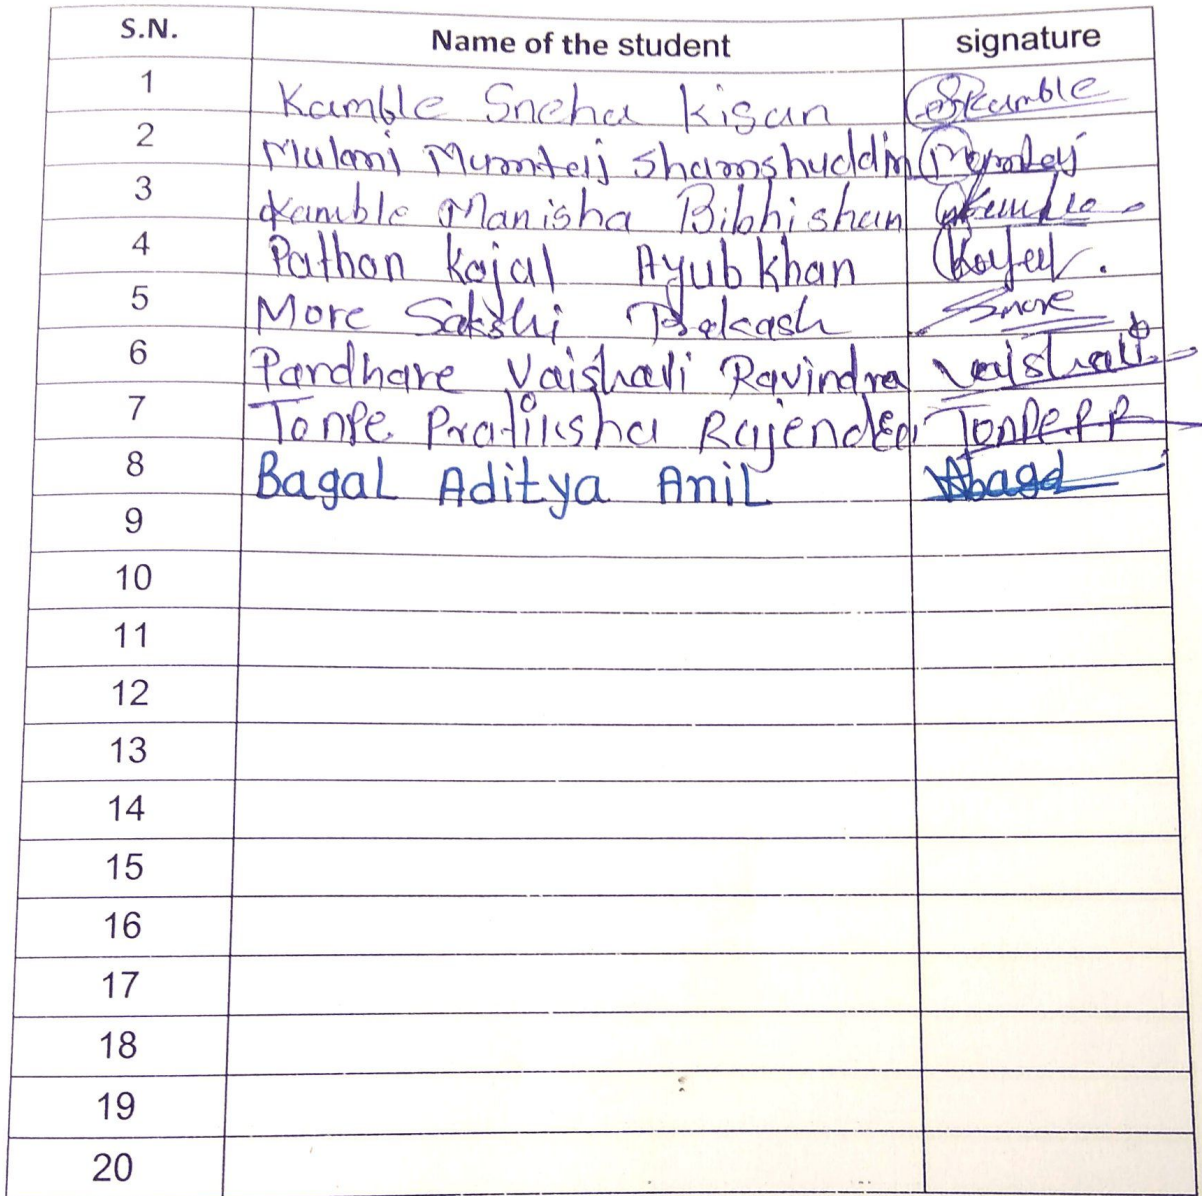 S.N. Name of the student signature
1 Kamble Sneha Kisan Skamble
2 Mulani Mumtej Shamshuddin Mumtej
3 Kamble Manisha Bibhishan
4 Pathan Kajal Ayub khan Kajal.
5 More Sakshi Prakash Smore
6 Pandhare Vaishali Ravindra Vaishali
7 Tonpe Pratiksha Rajendra Tonpe P R
8 Bagal Aditya Anil Abagal
9
10
11
12
13
14
15
16
17
18
19
20